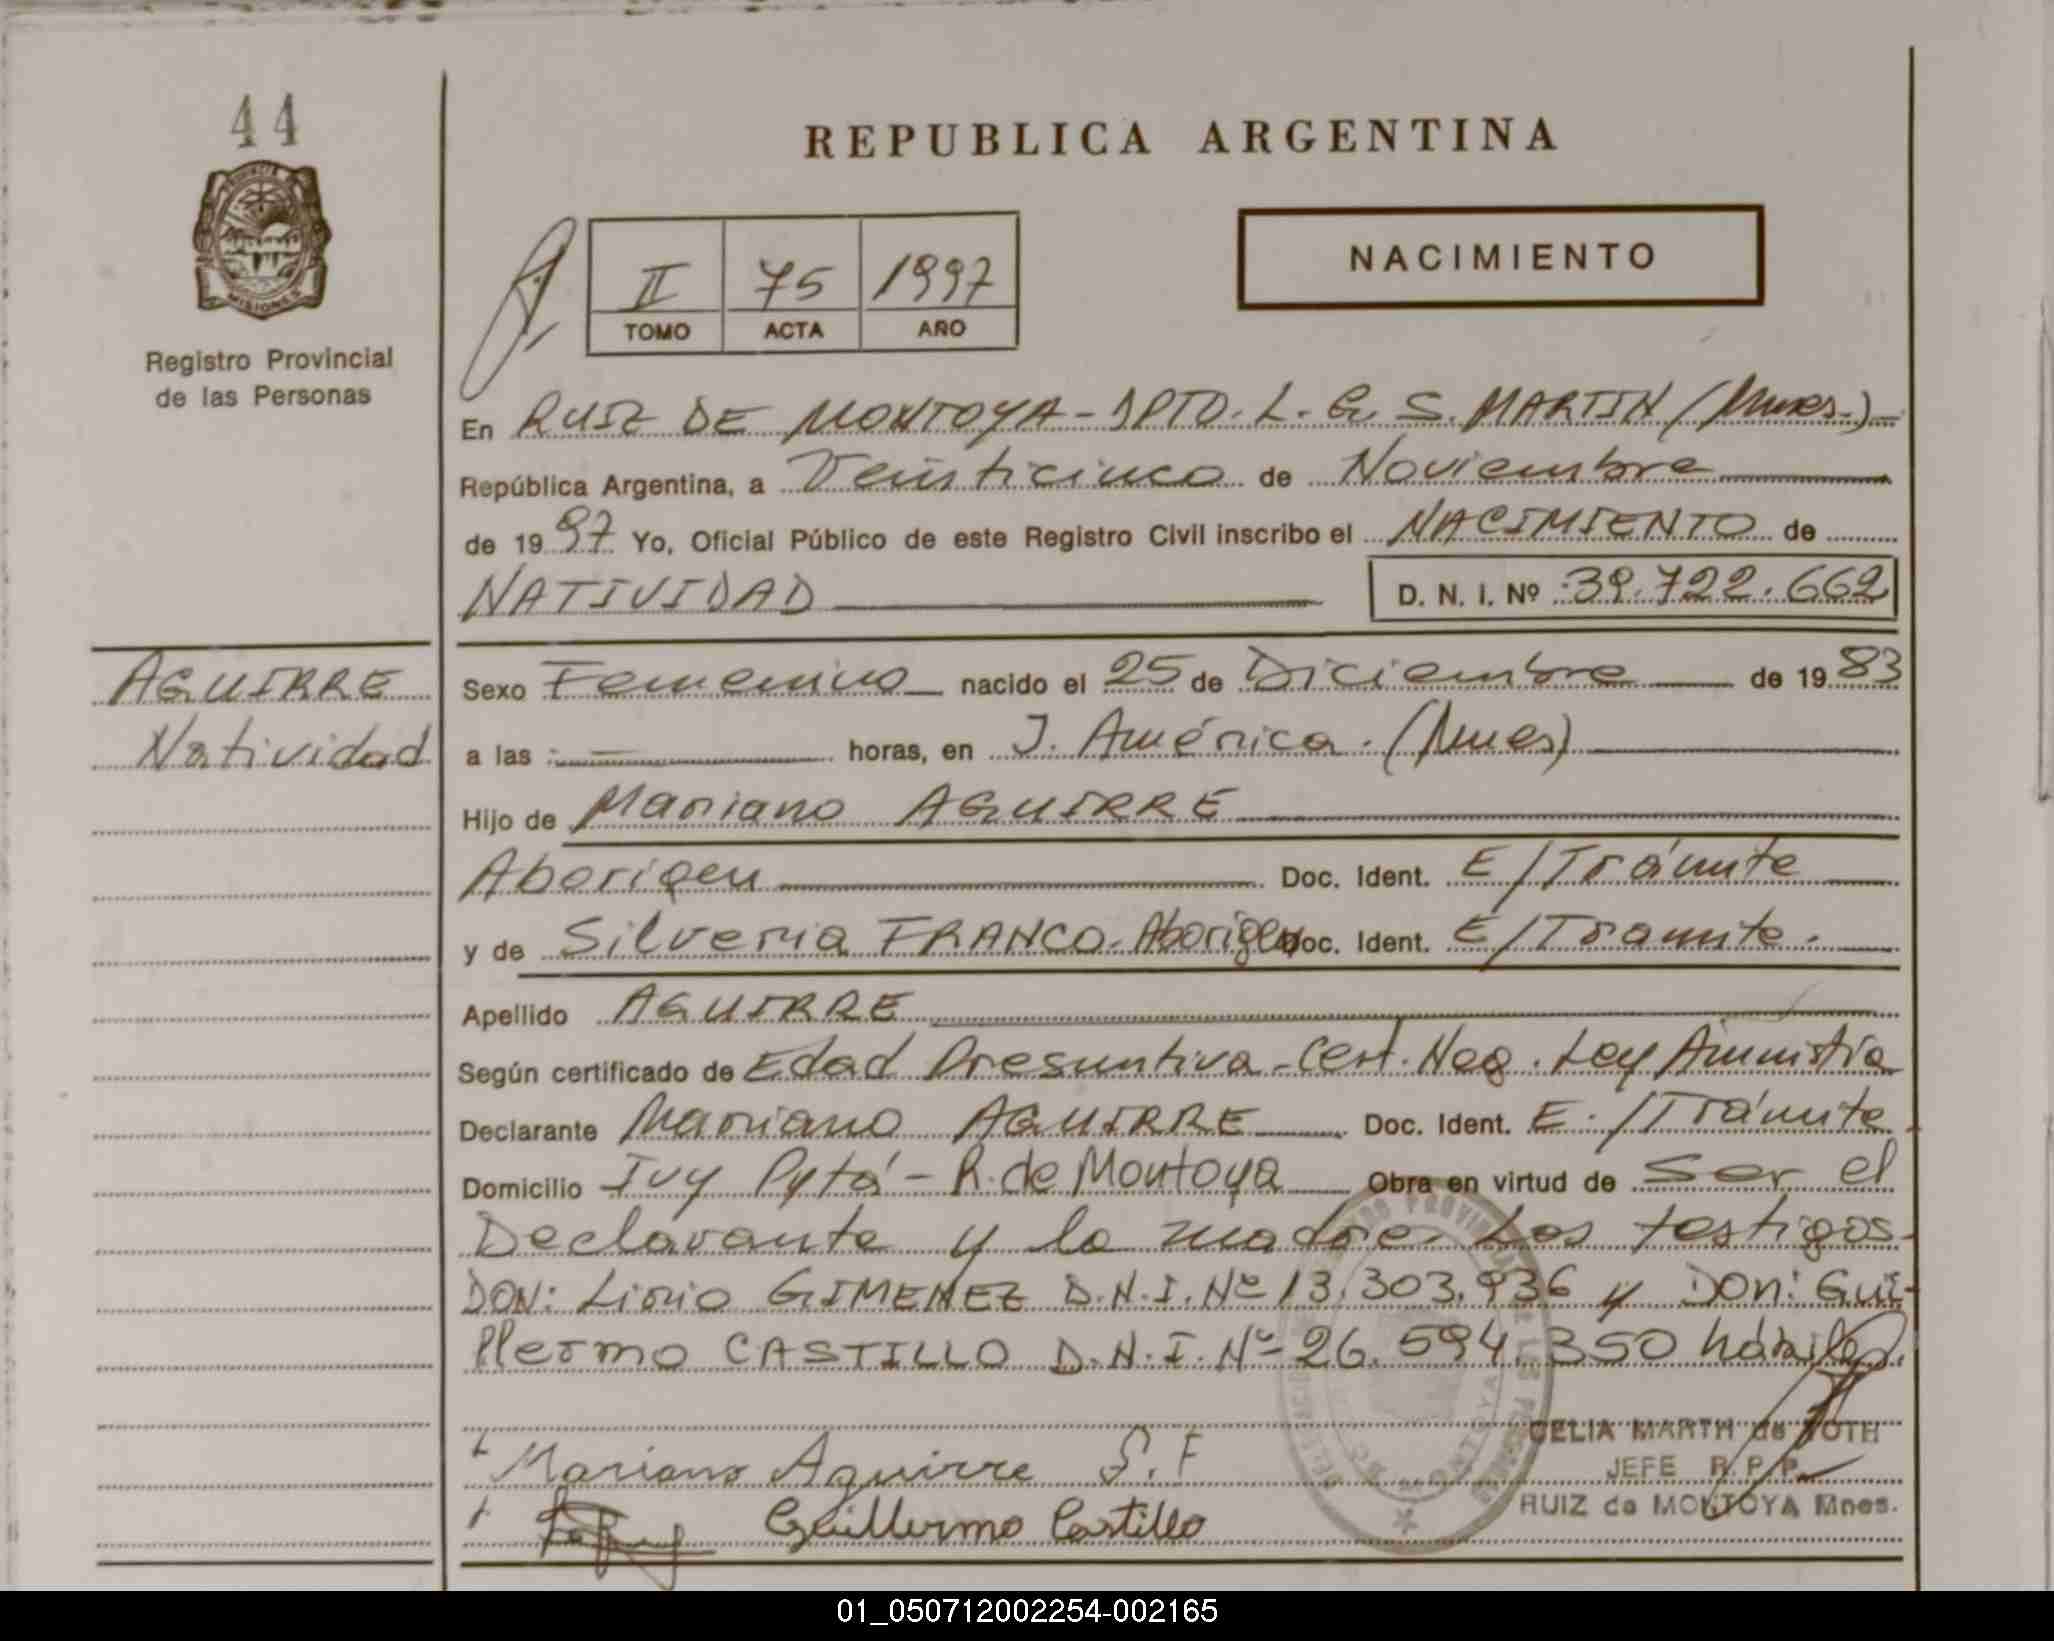 44
REPUBLICA ARGENTINA
II 75 1997
TOMO ACTA AÑO
NACIMIENTO
MISIONES
Registro Provincial
de las Personas
En RUIZ DE MONTOYA - DPTO. L. G. S. MARTIN (Mnes.)
República Argentina, a Veinticinco de Noviembre
de 1997 Yo, Oficial Público de este Registro Civil inscribo el NACIMIENTO de
NATIVIDAD D. N. I. Nº 39.722.662
AGUIRRE
Natividad
Sexo Femenino nacido el 25 de Diciembre de 1983
a las horas, en J. América. (Mnes)
Hijo de Mariano AGUIRRE
Aborigen Doc. Ident. E/Trámite
y de Silveria FRANCO - Aborigen Doc. Ident. E/Tramite.
Apellido AGUIRRE
Según certificado de Edad Presuntiva - Cert. Neg. Ley Aminstía
Declarante Mariano AGUIRRE Doc. Ident. E./Trámite
Domicilio Ivy Pytá - R. de Montoya Obra en virtud de ser el
Declarante y la madre. Los testigos
DON: Lirio GIMENEZ D.N.I. Nº 13.303.936 y DON: Gui-
llermo CASTILLO D.N.I. Nº 26.594.350 hábiles.
Mariano Aguirre S. F
Guillermo Castillo
CELIA MARTH de ROTH
JEFE R. P. P.
RUIZ de MONTOYA Mnes.
01_050712002254-002165